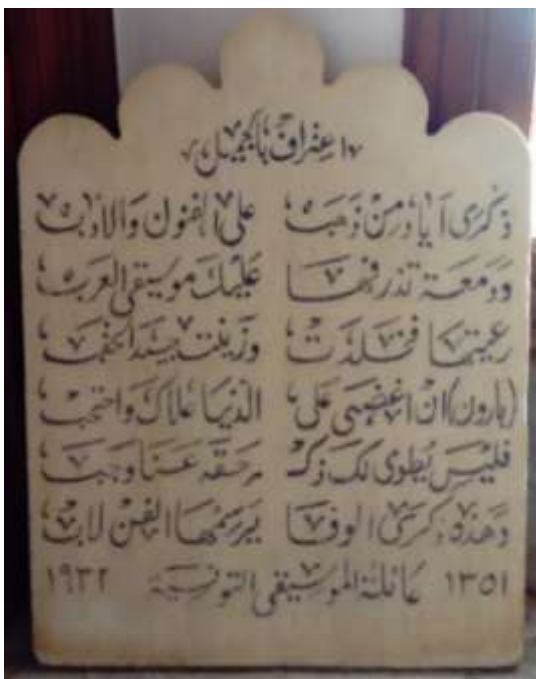 اعتراف بالجميل
ذكرى أياد من ذهب على الفنون والأدب
ودمعة تذرفها عليك موسيقى العرب
رعيتها فخلدت وزينت بيد الحقب
(بارون) ان اغضى على الدنيا علاك واحتجب
فليس يطوى لك ذكـ ـر حقه عنا وجب
وهذه ذكرى الوفا يرسمها الفن لأب
١٣٥١ عائلة الموسيقى التونسية ١٩٣٢